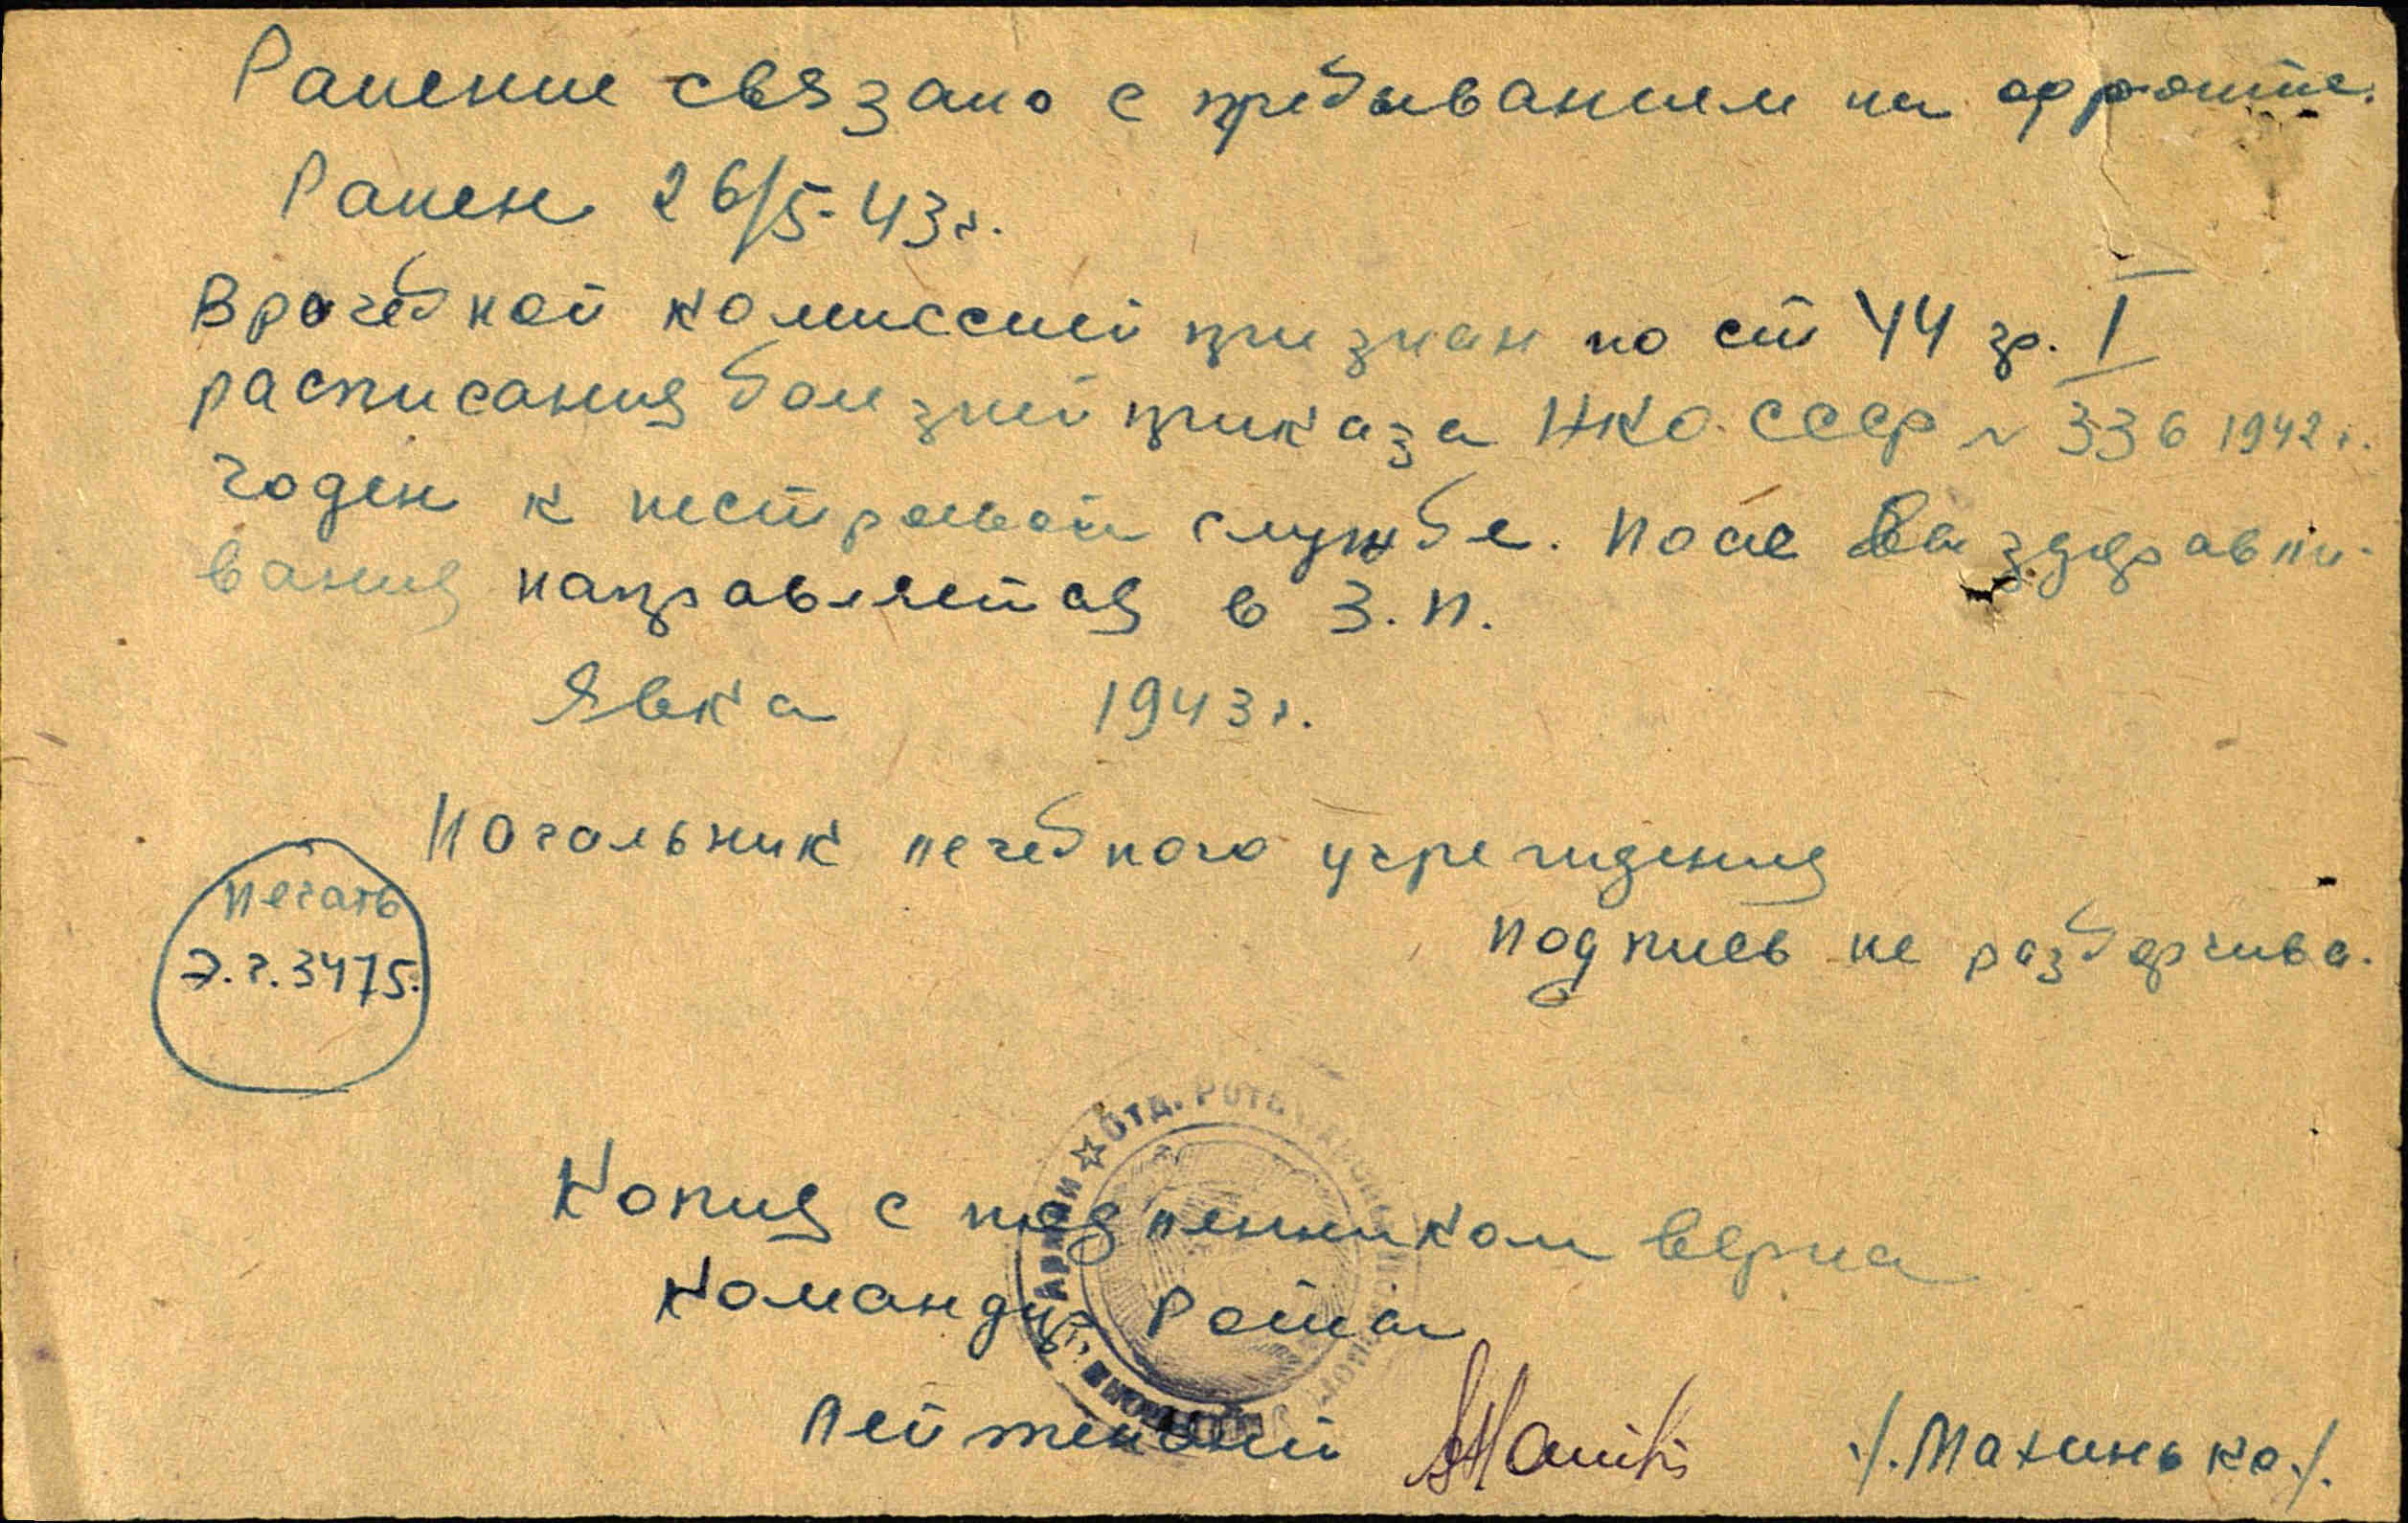 Ранение связано с пребыванием на фронте.
Ранен 26/5-43г.
Врачебной комиссией признан по ст 44 гр. I
расписания болезней приказа НКО СССР № 336 1942г.
годен к нестроевой службе. После ваздаравли-
вания направляется в З.П.
Явка 1943г.
Начальник лечебного учреждения
Печать
Э.г.3475.
подпись не разборчива.
☆ ОТД. РОТА
Армии
Копия с подленником верна
Командир Роты
Лейтенант /.Махинько./.